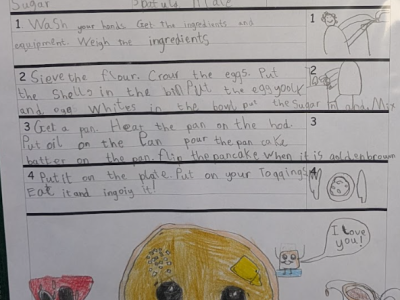 Sugar Spatula Plate
1 Wash your hands. Get the ingredients and 1
equipment. Weigh the ingredients
2 Sieve the flour. Crour the eggs. Put 2
the Shells in the bin Put the egg yoolk
and egg Whites in the bowl put the Sugar in and Mix
3 Get a pan. Hear the pan on the hod. 3
Put oil on the Pan pour the pan cake
batter on the pan. flip the pancake when it is goldenbrown
4 Put it on the plate. Put on your Toggings. 4
Eat it and ingoiy it!
I Love
you!